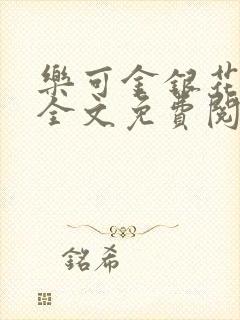 樂可金銀花
全文免費閱
銘希